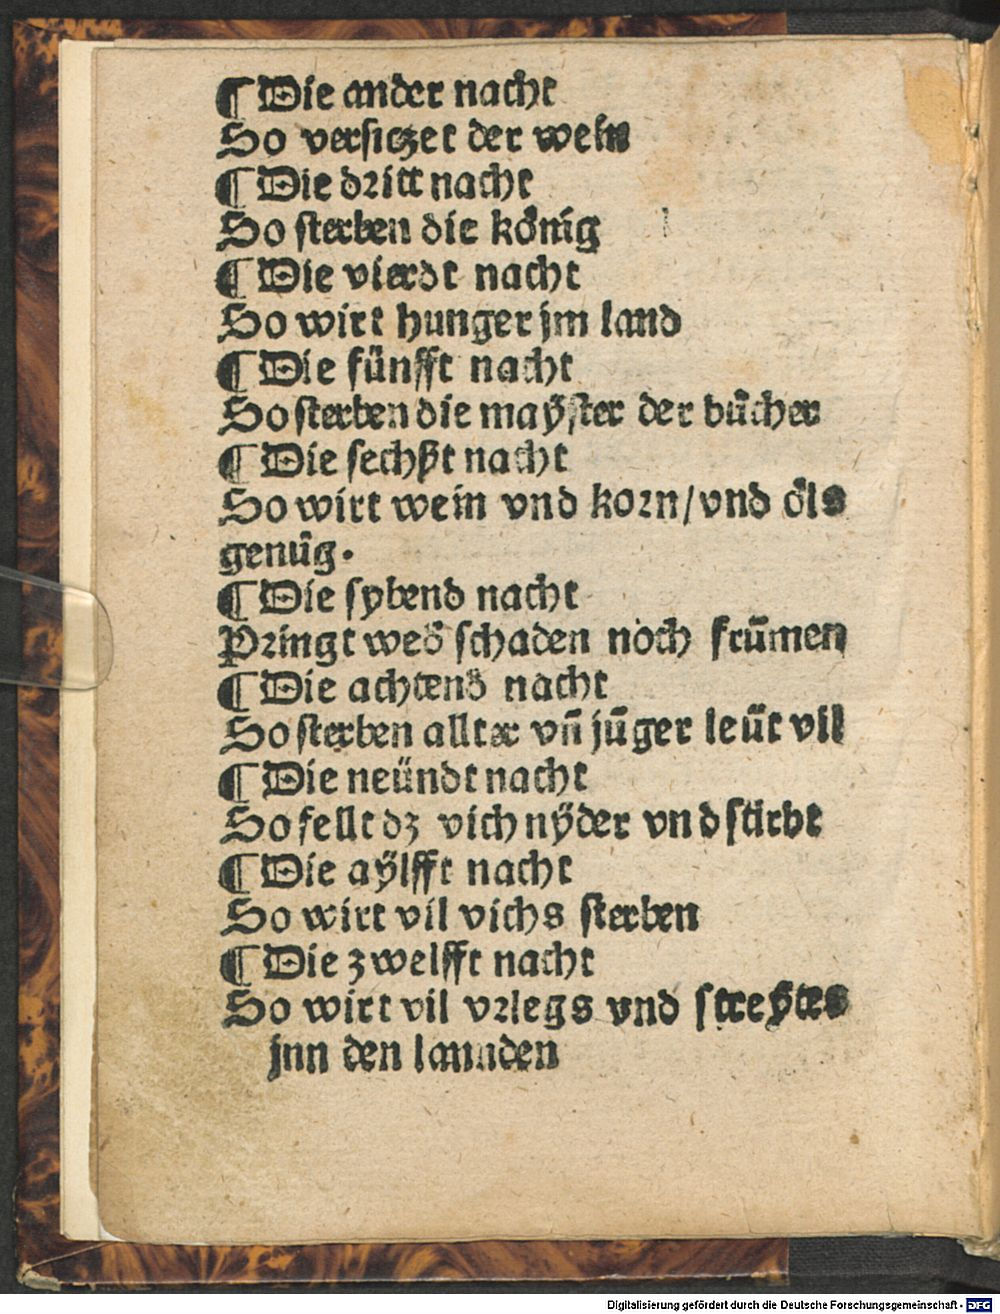 ¶ Die ander nacht
So versitzet der wein
¶ Die dritt nacht
So sterben die könig
¶ Die vierdt nacht
So wirt hunger jm land
¶ Die fünfft nacht
So sterben die maÿster der bücher
¶ Die sechßt nacht
So wirt wein vnd korn/vnd öls
genüg.
¶ Die sybend nacht
Pringt wed' schaden noch frūmen
¶ Die achtend nacht
So sterben allter vñ jūger leüt vil
¶ Die neündt nacht
So fellt dz vich nÿder vnd stirbt
¶ Die aÿlfft nacht
So wirt vil vichs sterben
¶ Die zwelfft nacht
So wirt vil vrlegs vnd streÿtes
jnn den lannden
Digitalisierung gefördert durch die Deutsche Forschungsgemeinschaft - DFG